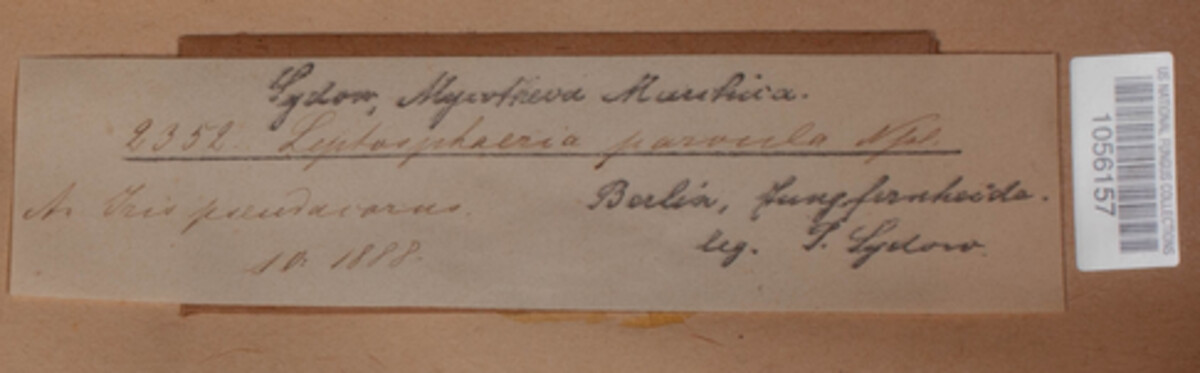 Sydow, Mycotheca Marchica.
2352. Leptosphaeria parvula Npl.
A. Iris pseudacorus.
10. 1888.
Berlin, Jungfernheide.
leg. P. Sydow.
US NATIONAL FUNGUS COLLECTIONS
1056157